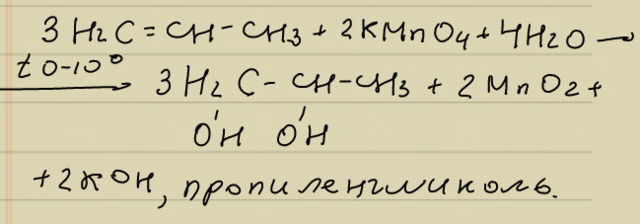 3 H2C = CH - CH3 + 2KMnO4 + 4H2O →
t 0-10° → 3 H2C - CH - CH3 + 2 MnO2 +
OH OH
+ 2KOH, пропиленгликоль.